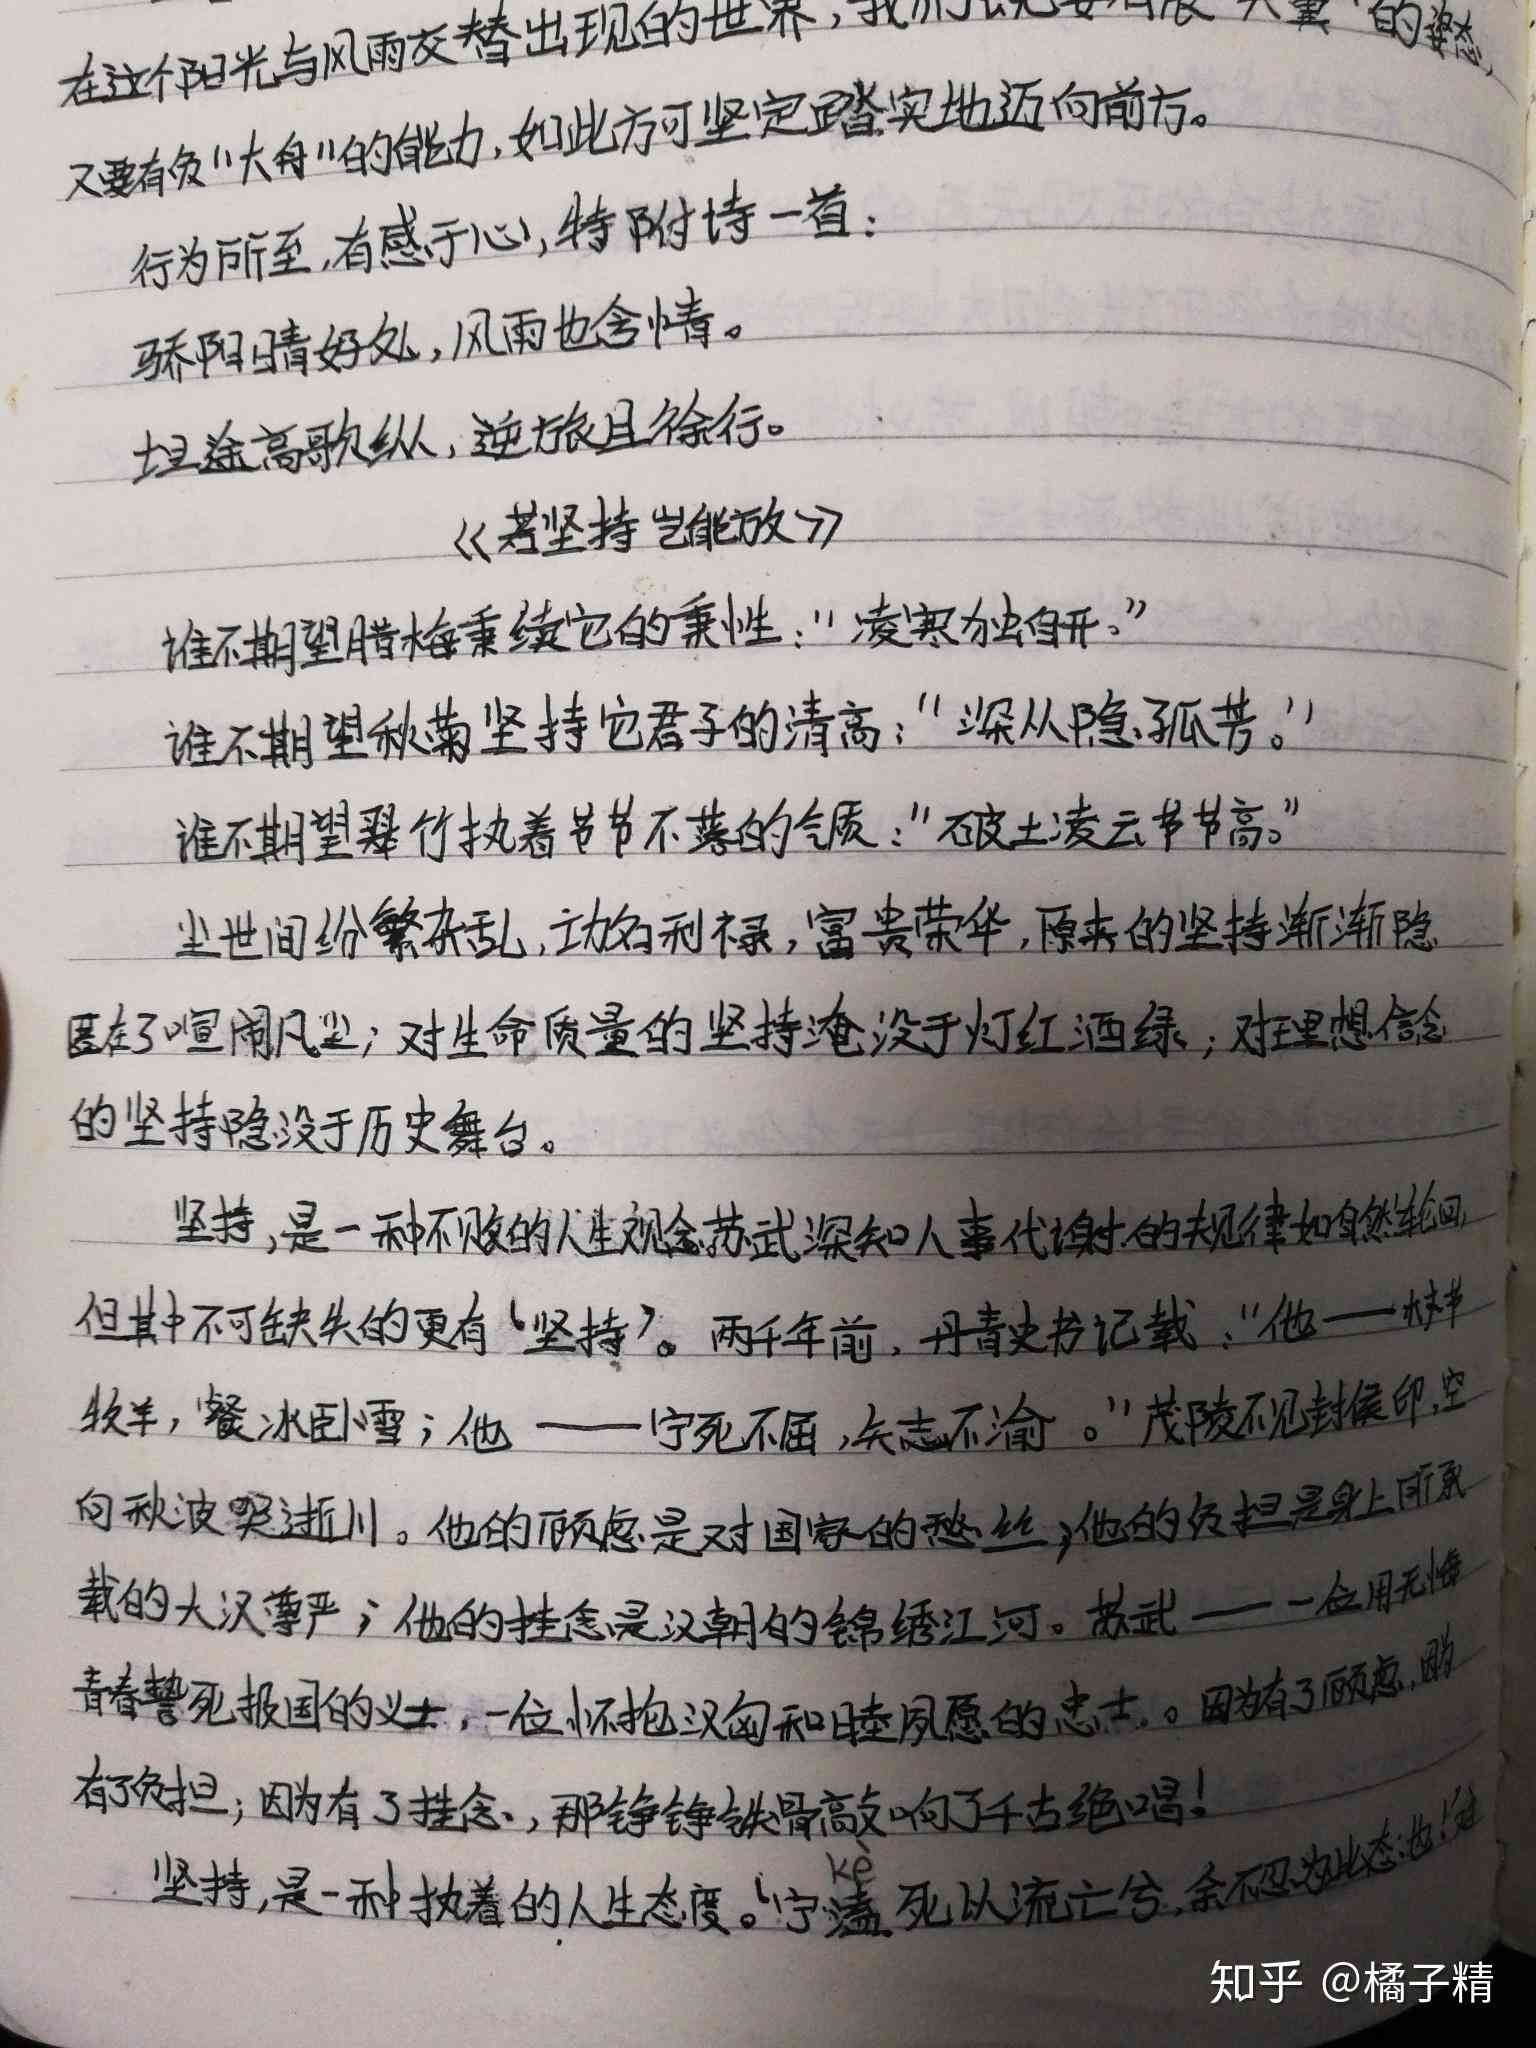 在这个阳光与风雨交替出现的世界,我们既要有展"大翼"的姿态,
又要有负"大舟"的能力,如此方可坚定踏实地迈向前方。
行为所至,有感于心,特附诗一首:
骄阳晴好处,风雨也含情。
坦途高歌纵,逆旅且徐行。
《若坚持岂能放》
谁不期望腊梅秉续它的秉性:"凌寒独自开。"
谁不期望秋菊坚持它君子的清高:"深丛隐孤芳。"
谁不期望翠竹执着节节不落的气质:"破土凌云节节高。"
尘世间纷繁杂乱,功名利禄,富贵荣华,原来的坚持渐渐隐
匿在了喧闹风尘;对生命质量的坚持淹没于灯红酒绿;对理想信念
的坚持隐没于历史舞台。
坚持,是一种不败的人生观念。苏武深知人事代谢的规律如自然轮回,
但其中不可缺失的更有'坚持'。两千年前,丹青史书记载:"他——
牧羊,餐冰卧雪;他——宁死不屈,矢志不渝。"茂陵不见封侯印,空
向秋波哭逝川。他的顾虑是对国家的愁丝;他的负担是身上所承
载的大汉尊严;他的挂念是汉朝的锦绣江河。苏武——一位用无悔
青春誓死报国的义士,一位怀抱汉匈和睦夙愿的忠士。因为有了顾虑,因为
有了负担;因为有了挂念,那铮铮铁骨高敲响了千古绝唱!
kè
坚持,是一种执着的人生态度。'宁溘死以流亡兮,余不忍为此态也!'
知乎 @橘子精